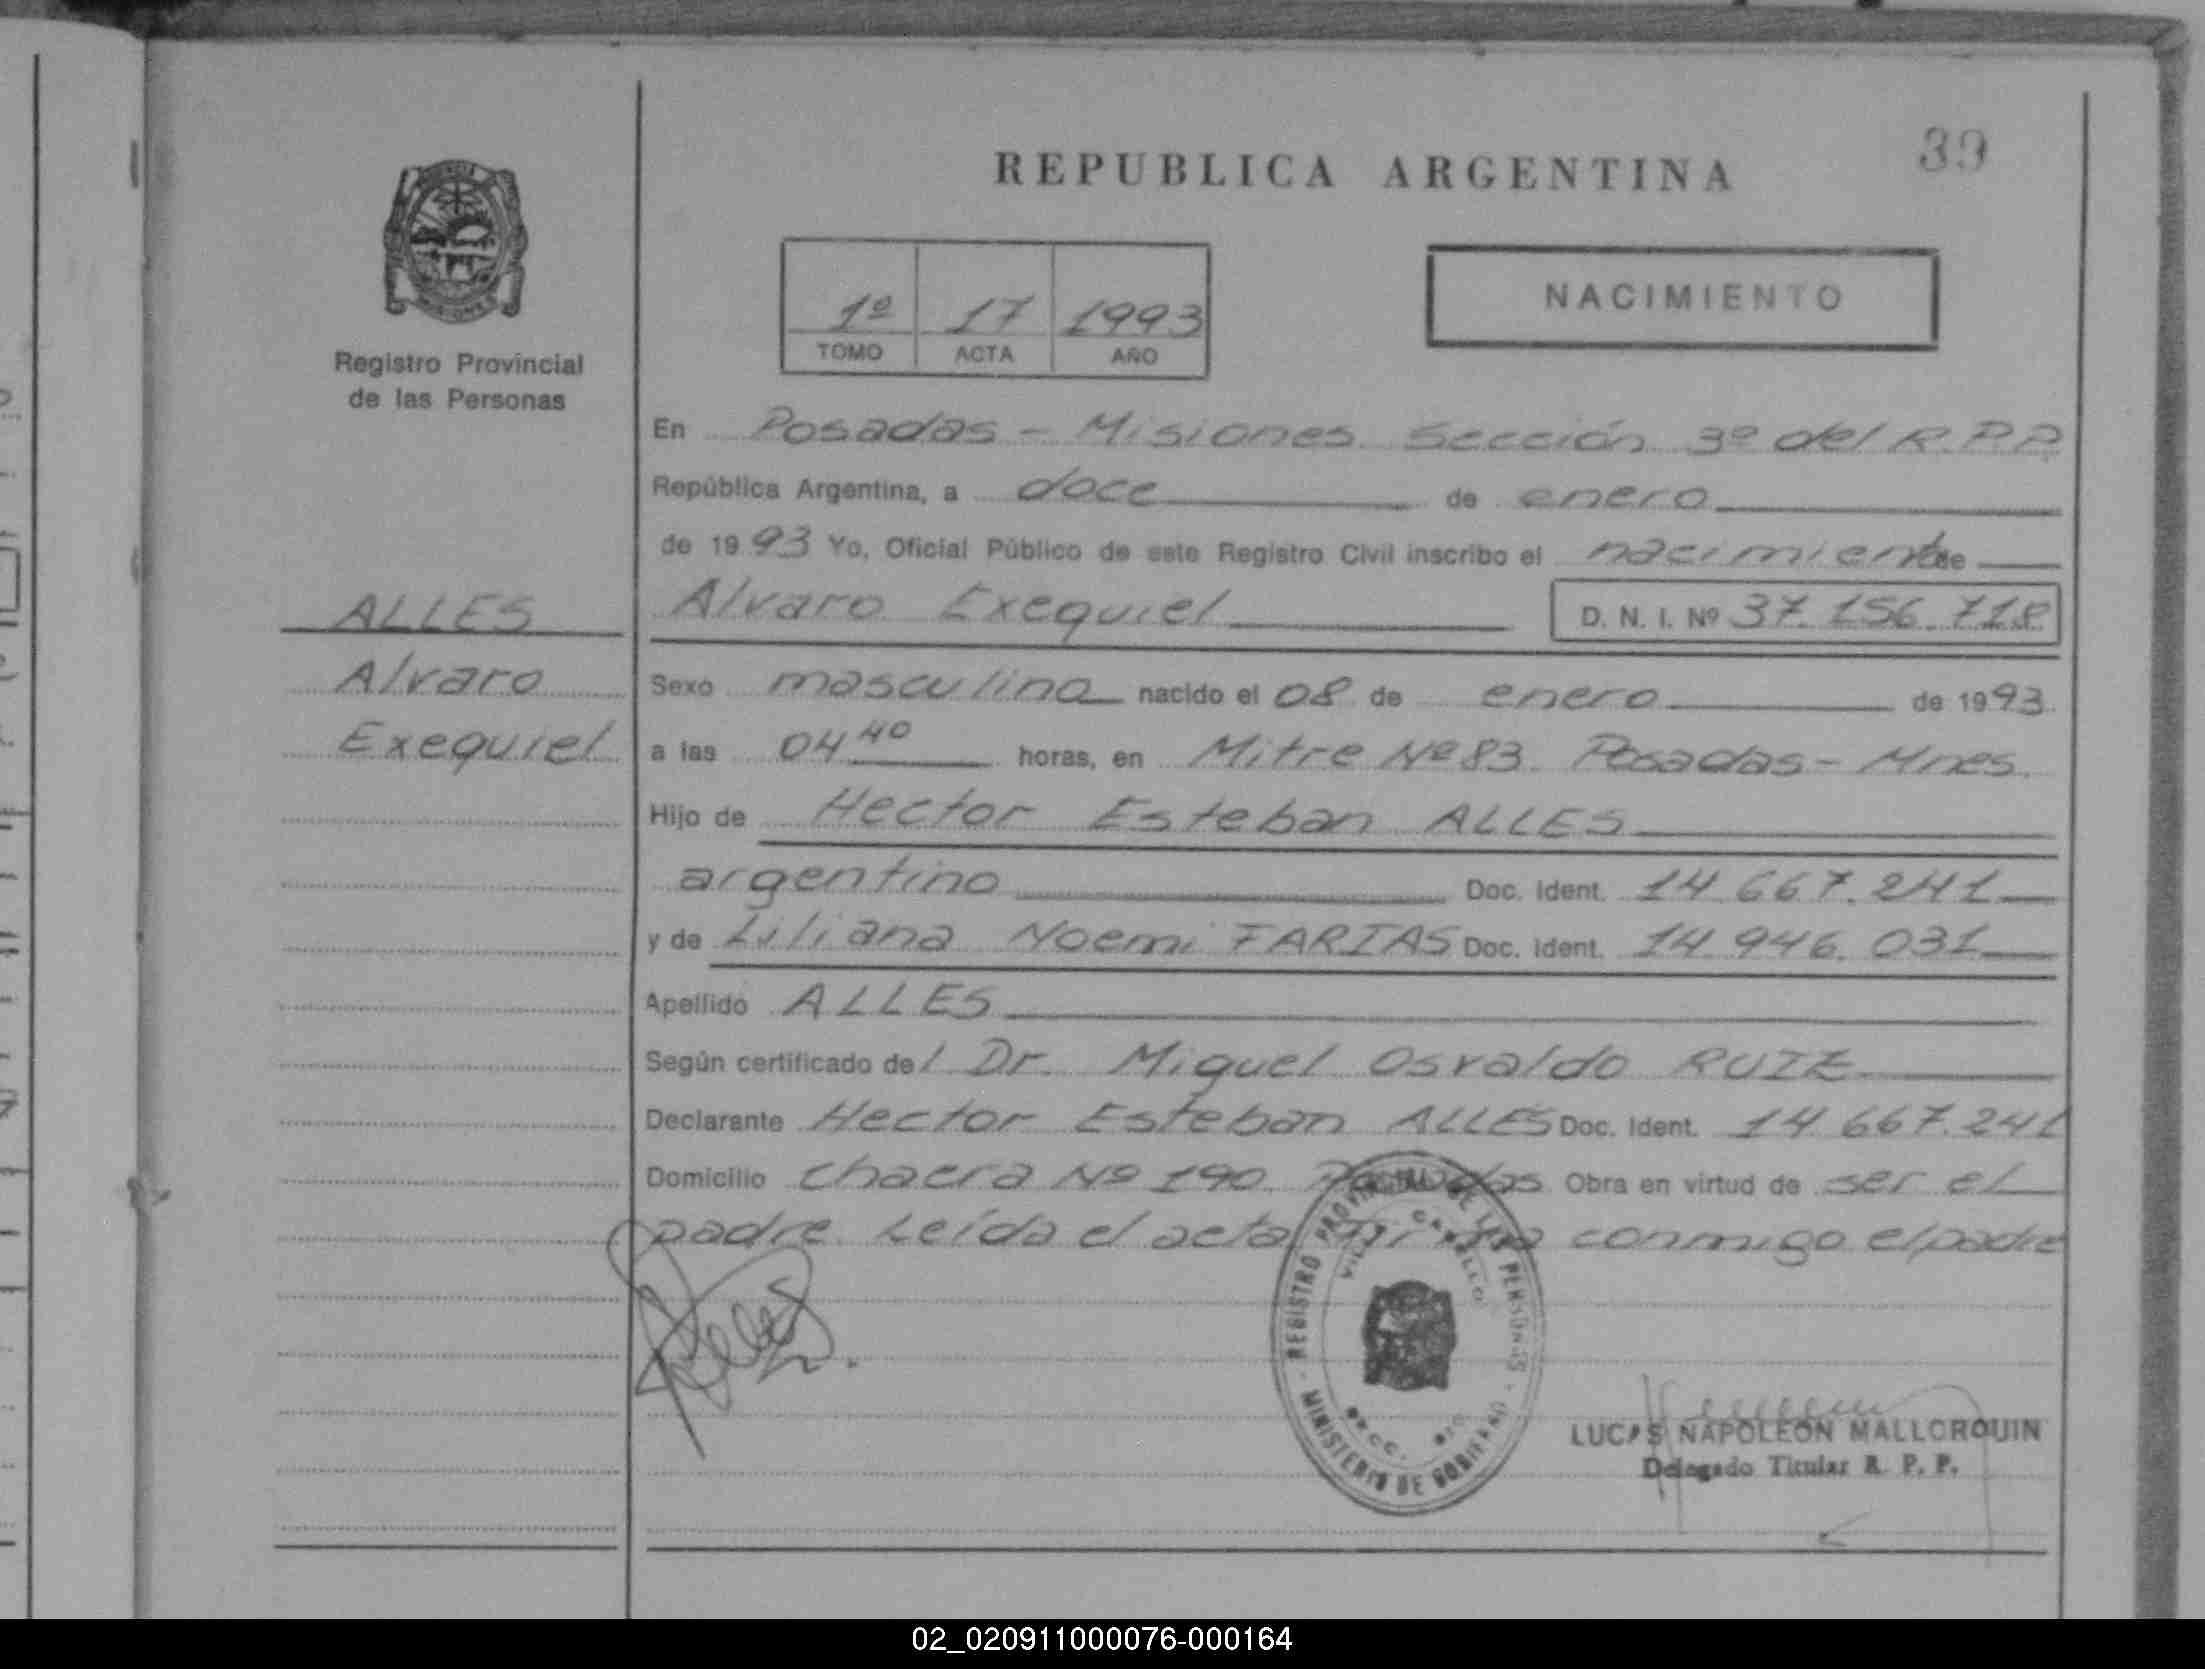 REPUBLICA ARGENTINA
39
Registro Provincial
de las Personas
1º 17 1993
TOMO ACTA AÑO
NACIMIENTO
En Posadas - Misiones Sección 3º del R.P.P.
República Argentina, a doce de enero
de 1993 Yo, Oficial Público de este Registro Civil inscribo el nacimiento de
ALLES
Alvaro
Exequiel
Alvaro Exequiel D. N. I. Nº 37.156.718
Sexo masculino nacido el 08 de enero de 1993
a las 04 40 horas, en Mitre Nº 83. Posadas - Mnes.
Hijo de Hector Esteban ALLES
argentino Doc. Ident. 14.667.241
y de Liliana Noemi FARIAS Doc. Ident. 14.946.031
Apellido ALLES
Según certificado del Dr. Miguel Osvaldo RUIZ
Declarante Hector Esteban ALLES Doc. Ident. 14.667.241
Domicilio chacra Nº 190. Posadas Obra en virtud de ser el
padre. Leída el acta firma conmigo el padre
REGISTRO PROVINCIAL DE LAS PERSONAS
MINISTERIO DE GOBIERNO
LUCAS NAPOLEON MALLORQUIN
Delegado Titular R. P. P.
02_020911000076-000164